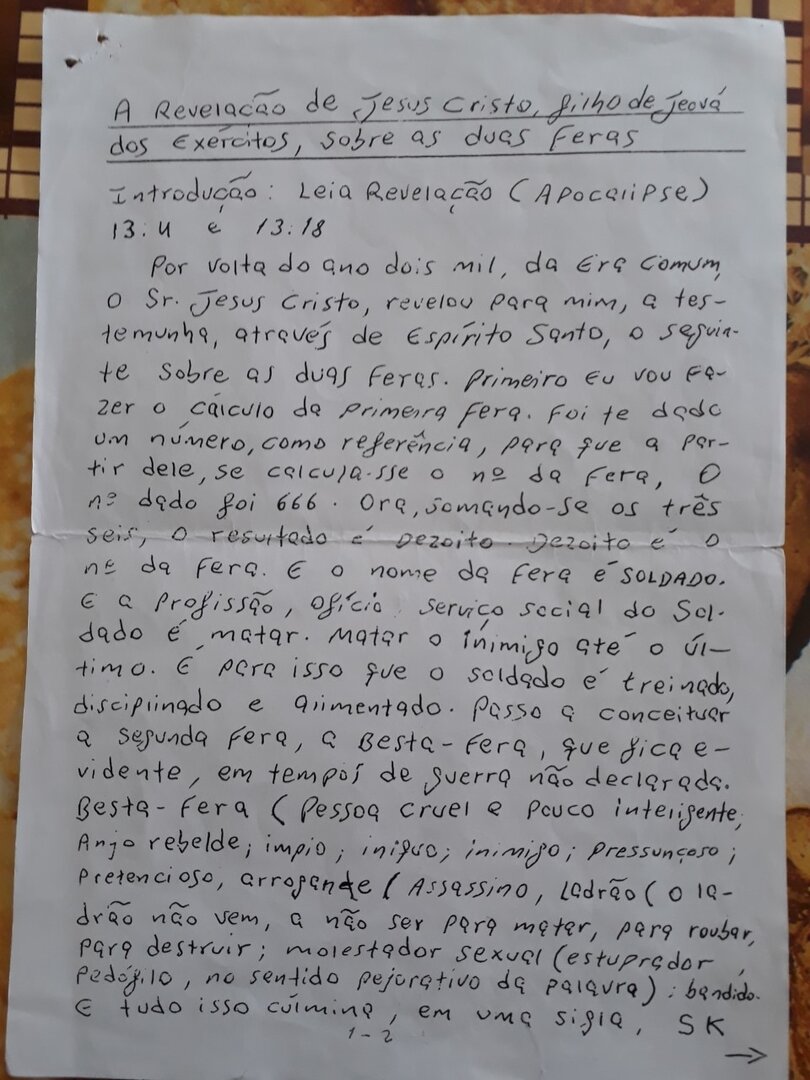 A Revelação de Jesus Cristo, filho de Jeová
dos Exércitos, sobre as duas Feras
Introdução: Leia Revelação (Apocalipse)
13:4 e 13:18
Por volta do ano dois mil, da Era Comum,
o Sr. Jesus Cristo, revelou para mim, a tes-
temunha, através de Espírito Santo, o seguin-
te sobre as duas Feras. Primeiro eu vou Fa-
zer o cálculo da primeira Fera. Foi te dado
um número, como referência, para que a par-
tir dele, se calcula-sse o nº da Fera, O
nº dado foi 666. Ora, somando-se os três
seis, o resultado é Dezoito. Dezoito é o
nº da Fera. E o nome da Fera é SOLDADO.
E a Profissão, Ofício, serviço social do Sol-
dado é matar. Matar o inimigo até o úl-
timo. É para isso que o soldado é treinado,
disciplinado e alimentado. Passo a conceituar
a segunda Fera, a Besta-Fera, que fica e-
vidente, em tempos de guerra não declarada.
Besta-Fera (Pessoa cruel e pouco inteligente;
Anjo rebelde; ímpio; iníquo; inimigo; pressunçoso;
pretencioso, arrogande (Assassino, Ladrão (o la-
drão não vem, a não ser para matar, para roubar,
para destruir; molestador sexual (estuprador,
Pedófilo, no sentido pejorativo da palavra); bandido.
E tudo isso culmina, em uma sigla, SK
1-2
→